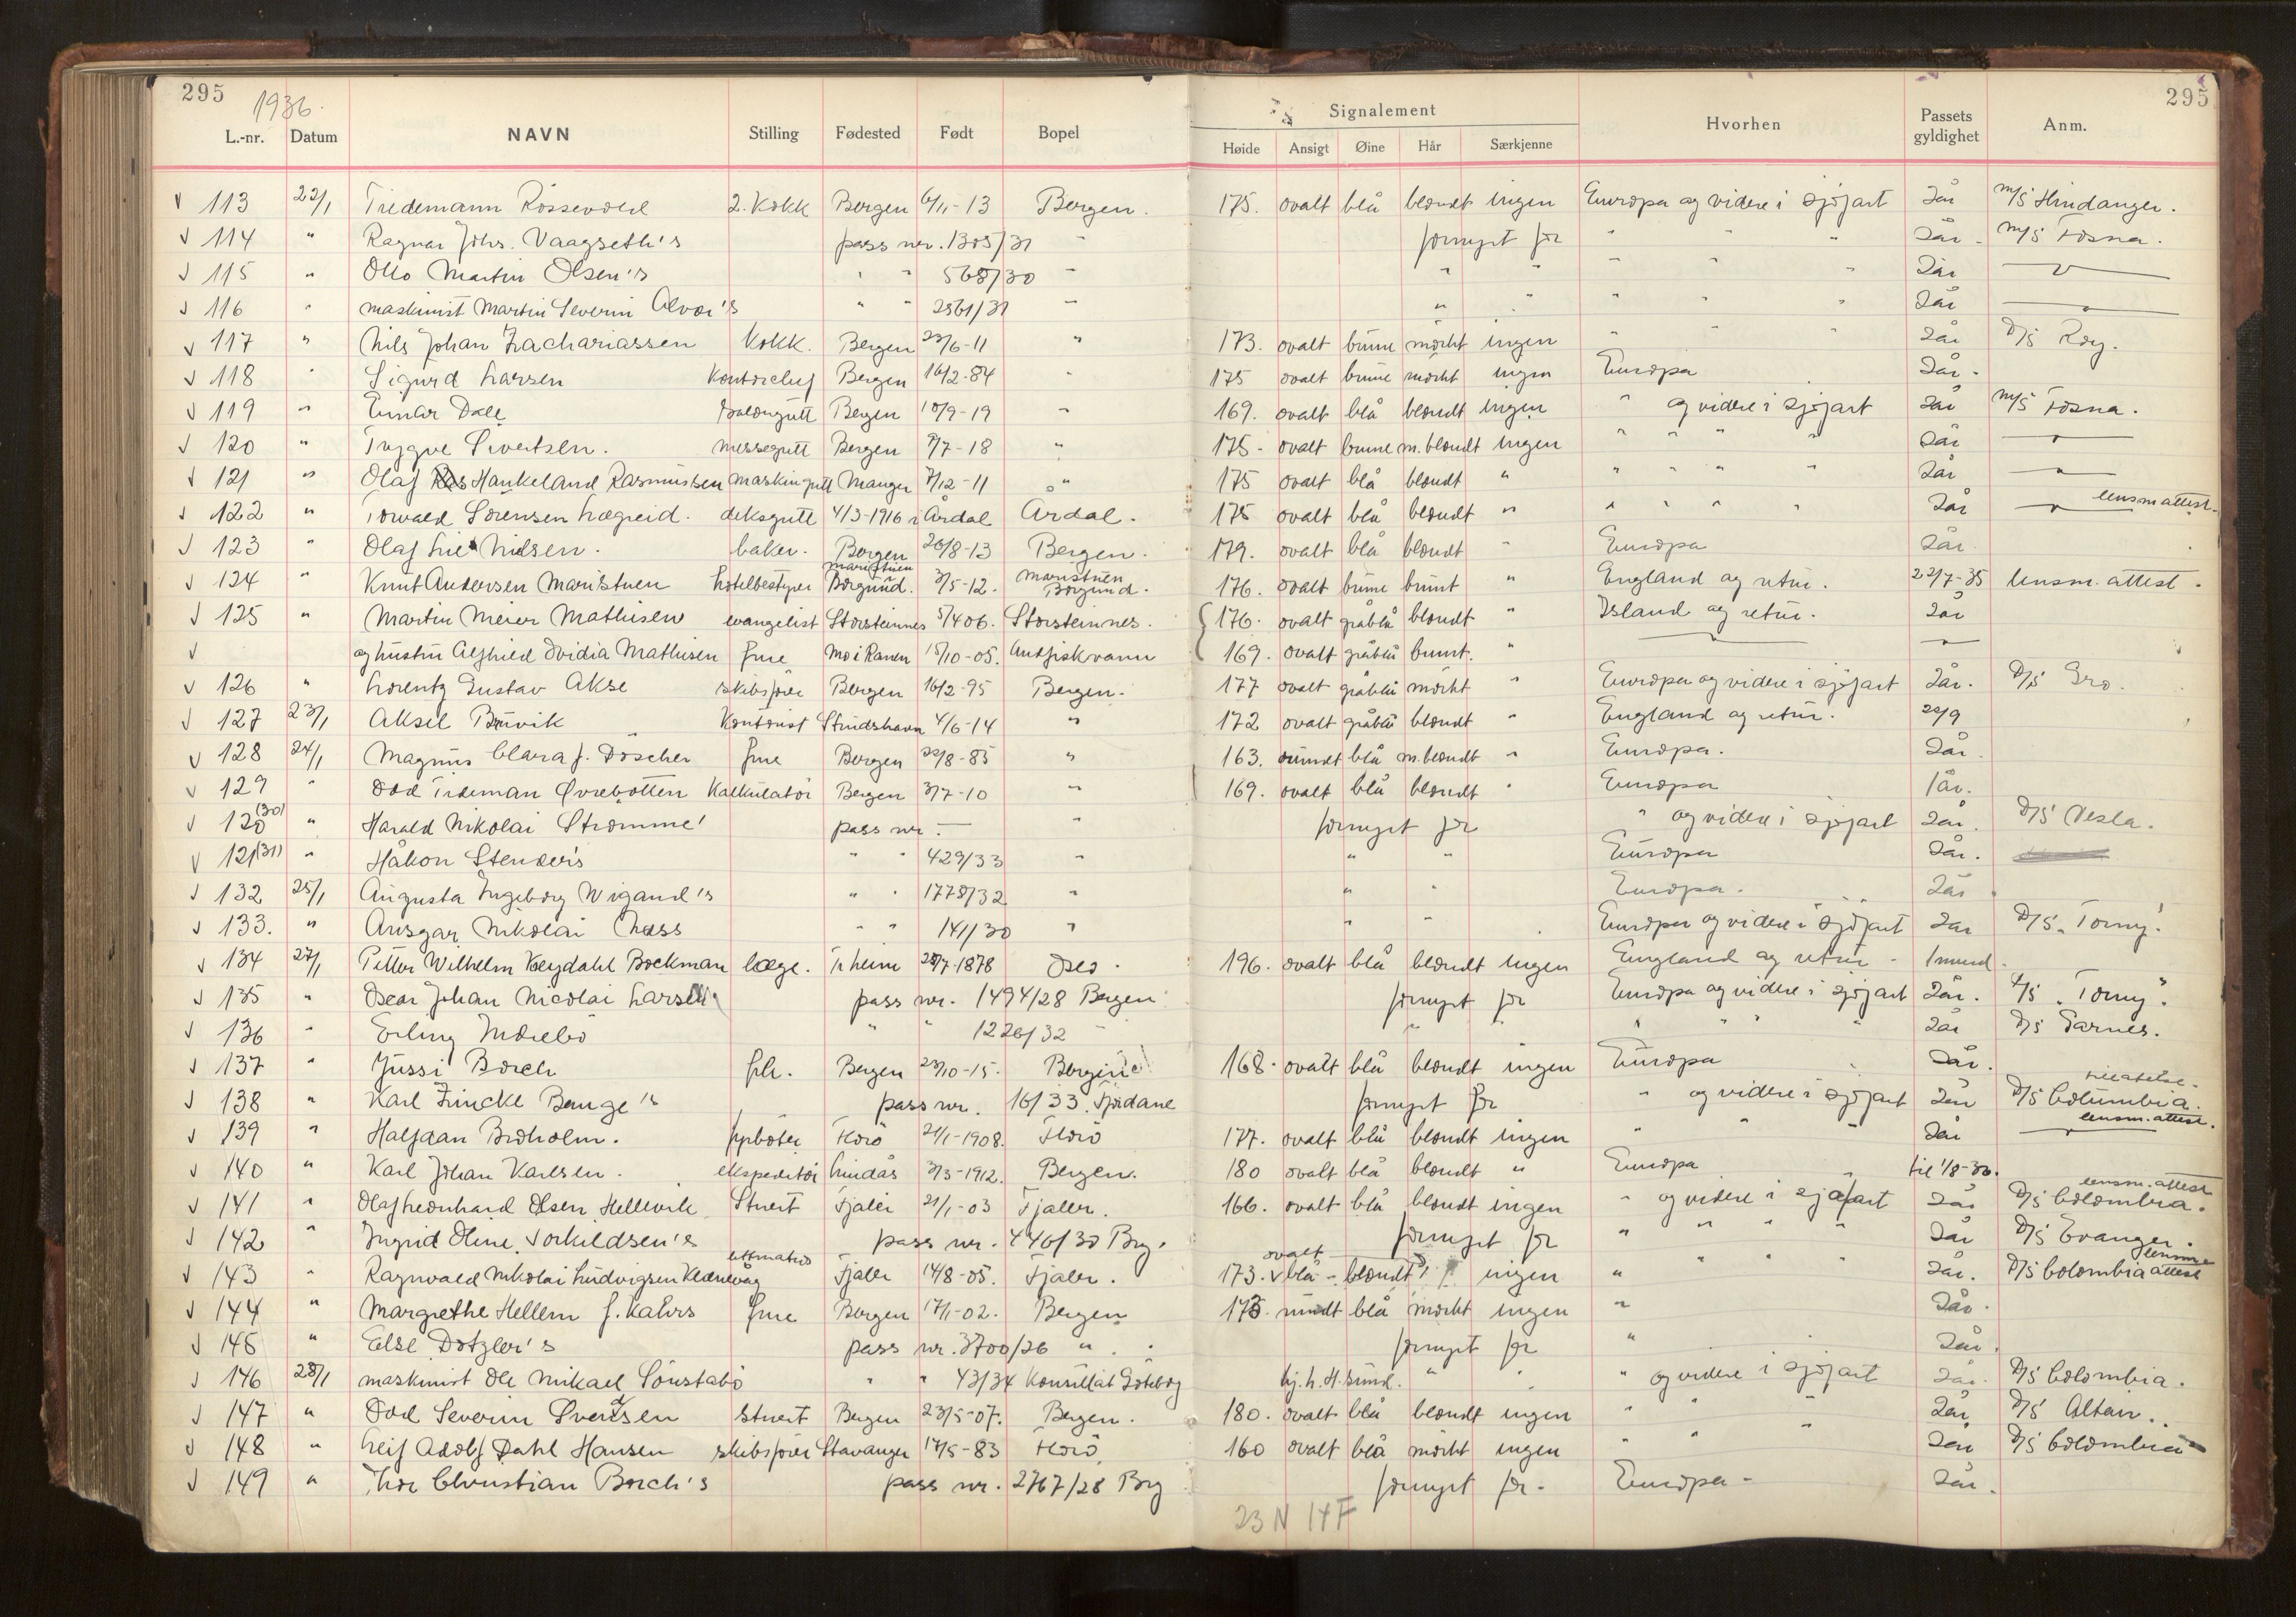 295 1936. 295
Signalement
L.-nr. Datum NAVN Stilling Fødested Født Bopel Høide Ansigt Øine Hår Særkjenne Hvorhen Passets gyldighet Anm.
113 22/1 Tiedemann Rossevold 2. Kokk Bergen 6/11-13 Bergen. 175. ovalt blå blondt ingen Europa og videre i sjøfart 2år M/S Hindanger.
114 " Ragnar Johs. Vaagseth's pass nr. 1305/31 " fornyet for " " " 2år - M/S Fosna.
115 " Otto Martin Olsen's " " 568/30 " " " " " " 2år "
116 " maskinist Martin Severin Alvær's " " 2561/31 " " " " " " 2år "
117 " Nils Johan Zachariassen Kokk. Bergen 23/6-11 " 173. ovalt brune mørkt ingen " " " 2år D/S Røy.
118 " Sigurd Larsen Kontorchef Bergen 16/2-84 " 175 ovalt brune mørkt ingen Europa 2år -
119 " Einar Dale salongutt Bergen 10/9-19 " 169. ovalt blå blondt ingen " og videre i sjøfart 2år M/S Fosna.
120 " Trygve Sivertsen. messegutt Bergen 9/7-18 " 175- ovalt brune m. blondt ingen " " " " 2år "
121 " Olaf Haukeland Rasmussen maskingutt Manger 7/12-11 " 175 ovalt blå blondt " " " " " 2år "
122 " Torvald Sørensen Lægreid. deksgutt 4/3-1916 i Årdal Årdal. 175 ovalt blå blondt " " " " " 2år " lensm attest.
123 " Olaf Lie Nilsen. baker. Bergen 26/8-13 Bergen. 179. ovalt blå blondt " Europa 2år.
124 " Knut Andersen Maristuen hotelbestyrer Maristuen Borgund. 3/5-12. Maristuen Borgund. 176. ovalt brune brunt " England og retur. 22/7-35 lensm. attest.
125 " Martin Meier Mathisen evangelist Storsteinnes 5/4 06. Storsteinnes. 176. ovalt gråblå blondt " Island og retur. 2år
og hustru Alfhild Ovidia Mathisen frue Mo i Ranen 15/10-05. Andfiskvann 169. ovalt gråblå brunt. " "
126 " Lorentz Gustav Akse skibsfører Bergen 16/2-95 Bergen. 177 ovalt gråblå mørkt " Europa og videre i sjøfart 2år. D/S Gro.
127 23/1 Aksel Buvik Kontorist Strudshavn 4/6-14 " 172 ovalt gråblå blondt " England og retur. 22/9
128 24/1 Magnus Clara f. Döscher frue Bergen 22/8-85 " 163. rundt blå m. blondt " Europa. 2år.
129 " Odd Tideman Øvrebotten Kalkulatør Bergen 3/7-10 " 169. ovalt blå blondt " Europa 1år.
120 (30) " Harald Nikolai Strømme' pass nr. — " fornyet for " og videre i sjøfart 2år. D/S Vesla.
121 (31) " Håkon Stender's " " 429/33 " " " Europa 2år.
132 25/1 Augusta Ingeborg Wigand's " " 1778/32 " " " Europa. 2år
133. " Ansgar Nikolai Næss " " 141/30 " " " Europa og videre i sjøfart 2år D/S „Torny".
134 27/1 Petter Wilhelm Krydahl Bøckman læge. Tr heim 28/7-1878 Oslo. 196. ovalt blå blondt ingen England og retur - 1 mnd.
135 " Oscar Johan Nicolai Larsen pass nr. 1494/28 Bergen fornyet for Europa og videre i sjøfart 2år. D/S „Torny".
136 " Erling Indrebø " " 1226/32 " " " " " " " 2år D/S Garnes.
137 " Jussi Borch frk. Bergen 23/10-15. Bergen 168. ovalt blå blondt ingen Europa 2år.
138 " Karl Zincke Bange's pass nr. 16/33. Fjordane fornyet for " og videre i sjøfart 2år D/S Columbia. tillatelse.
139 " Halfdan Broholm. fyrbøter Florø 24/1-1908. Florø 177. ovalt blå blondt ingen " " " 2år " lensm. attest.
140 " Karl Johan Karlsen. ekspeditør Lindås 3/3-1912. Bergen. 180 ovalt blå blondt " Europa til 1/8-36.
141 " Olaf Leonhard Olsen Hellevik Stuert Fjaler 21/1-03 Fjaler. 166. ovalt blå blondt ingen " og videre i sjøfart 2år D/S Colombia. lensm. attest
142 " Ingrid Oline Torkildsen's pass nr. 446/30 Brg. fornyet for " " " " 2år D/S Evanger.
143 " Ragnvald Nikolai Ludvigsen Kleinevåg lettmatros Fjaler 14/8-05. Fjaler. 173. ovalt blå - blondt ingen " " " " 2år. D/S Colombia lensm attest
144 " Margrethe Hellem f. Kahrs frue Bergen 17/1-02. Bergen 173. rundt blå mørkt ingen " 2år.
145 " Else Dotzler's pass nr. 3700/26 " fornyet for " 2år.
146 28/1 maskinist Ole Mikael Sönstabö " " 43/34 Konsulat Göteborg " " " og videre i sjøfart 2år. D/S Colombia.
147 " Odd Severin Svendsen Stuert Bergen 23/5-07. Bergen. 180. ovalt blå blondt ingen " " " 2år. D/S Altair.
148 " Leif Adolf Dahl Hansen skibsfører Stavanger 17/5-83 Florø 160 ovalt blå mørkt ingen " " " 2år D/S Colombia
149 " Thor Christian Borch's pass nr. 2767/28 Brg fornyet for. Europa - 2år.
23 N 14 F